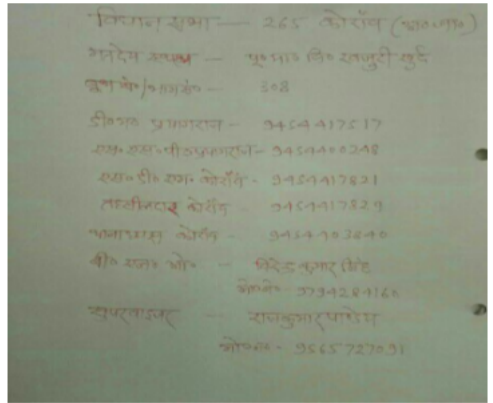 विधान सभा — 265 कोराँव (अ०जा०)
मतदेय स्थल — पू० मा० वि० खजुरी खुर्द
बूथ सं०/भाग सं० — 308
डी०एम० प्रयागराज - 9454417517
एस० एस० पी० प्रयागराज - 9454400248
एस० डी० एम० कोराँव - 9454417821
तहसीलदार कोराँव - 9454417829
थानाध्यक्ष कोराँव - 9454403840
बी० एल० ओ० — विरेन्द्र कुमार सिंह
मो०नं० - 9794284160
सुपरवाइजर — राजकुमार पाण्डेय
मो०नं० - 9565727091